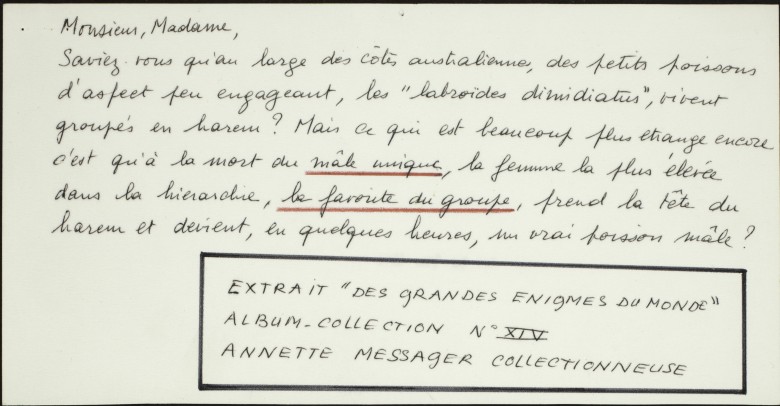 Monsieur, Madame,
Saviez-vous qu'au large des côtes australiennes, des petits poissons
d'aspect peu engageant, les "labroïdes dimidiatus", vivent
groupés en harem ? Mais ce qui est beaucoup plus étrange encore
c'est qu'à la mort du mâle unique, la femme la plus élevée
dans la hierarchie, la favorite du groupe, prend la tête du
harem et devient, en quelques heures, un vrai poisson mâle ?
EXTRAIT "DES GRANDES ENIGMES DU MONDE"
ALBUM-COLLECTION N° XIV
ANNETTE MESSAGER COLLECTIONNEUSE